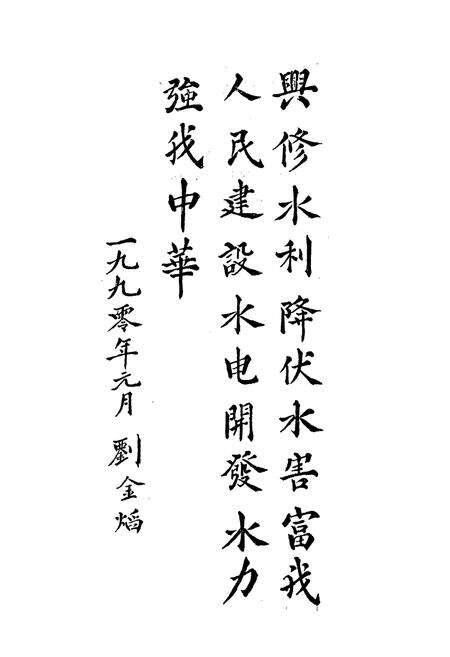 興修水利降伏水害富我
人民建設水电開發水力
強我中華
一九九零年元月 劉金焰